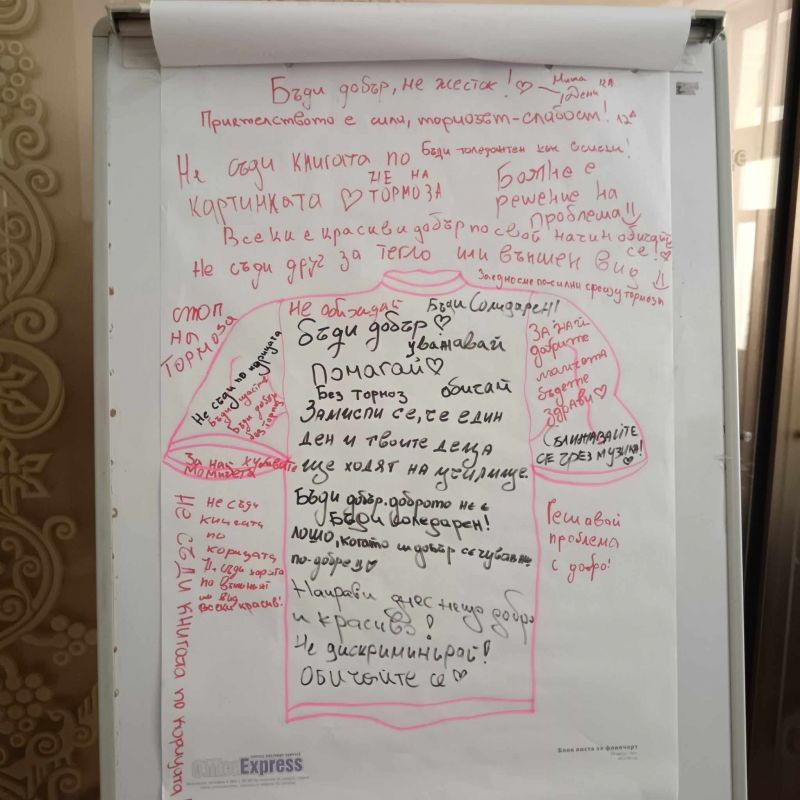 Бъди добър, не жесток! ♡ Миша 12А
Дени
Приятелството е сила, тормозът-слабост! 12А
Не съди книгата по
Бъди толерантен към всички!
картинката ♡
НЕ НА
ТОРМОЗА
Бой не е
решение на
проблема!!
Всеки е красив и добър по свой начин обичайте
се! ♡
Не съди друг за тегло или външен вид !!
Заедно сме по-силни срещу тормоза
СТОП
НА
ТОРМОЗА
Не обиждай
Бъди Солидарен!
Бъди добър! ♡
уважавай
Помагай ♡
Без тормоз
обичай
Замисли се, че един
ден и твоите деца
ще ходят на училище.
Бъди добър. доброто не е
Бъди соледарен!
лошо, когато си добър се чувстваш
по-добре ♡
Направи днес нещо добро
и красиво!
Не дискриминирай!
Обичайте се ♡
Не съди по корицата
Бъди щастлив
Бъди добър
без тормоз
За най хубавите
момичета
За най
добрите
момчета
бъдете
здрави ♡
Сближавайте
се чрез музика!
♡
Не съди
книгата
по
корицата
Не съди хората
по външният
им вид
всеки красив!
Не съди книгата по корицата
Решавай
проблема
с добро!
OfficeExpress
Блок листа за флипчарт